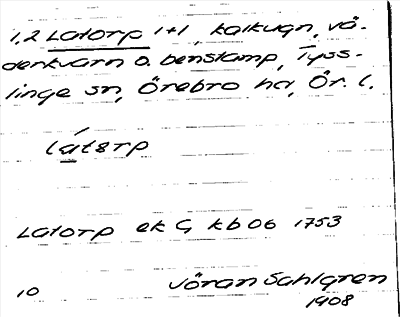 1,2 Latorp 1+1, kalkugn, vä-
derkvarn o. benstamp, Tyss-
linge sn, Örebro hd, Ör. l.
látorp
Latorp ek G kb 06 1753
10 Jöran Sahlgren
1908